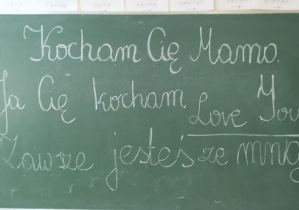 Kocham Cię Mamo.
Ja Cię kocham Love You
Zawsze jesteś ze mną